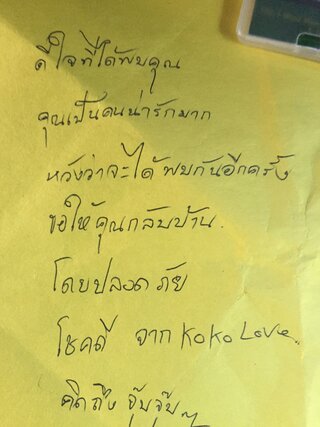 ดีใจที่ได้พบคุณ
คุณเป็นคนน่ารักมาก
หวังว่าจะได้พบกันอีกครั้ง
ขอให้คุณกลับบ้าน
โดยปลอดภัย
โชคดี จาก KoKo Love
คิดถึง จุ๊บจุ๊บๆ